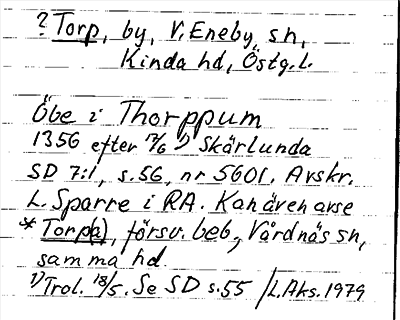 ? Torp, by, V. Eneby sn,
Kinda hd, Östg.l.
Öbe i Thorppum
1356 efter 7/6 1) Skärlunda
SD 7:1, s. 56, nr 5601. Avskr.
L. Sparre i RA. Kan även avse
* Torp(a), försv. beb., Vårdnäs sn,
samma hd.
1) Trol. 18/5. Se SD s. 55 /L. Aks. 1979